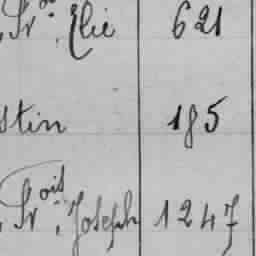 Fr. Elie 621
stin 185
Frois, Joseph 1247